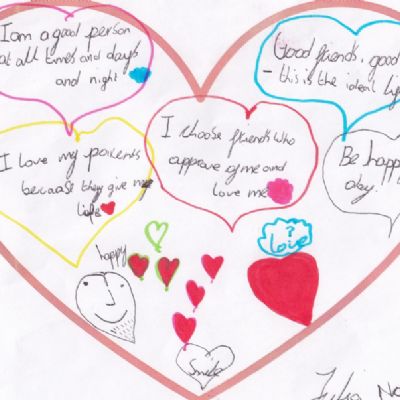 I am a good person
at all times and days
and night
Good friends, good
- this is the ideal
I love my parents
because they give my
I choose friends who
approve of me and
love me
Be happ
day.
happy
?
Love
Smile
Julia